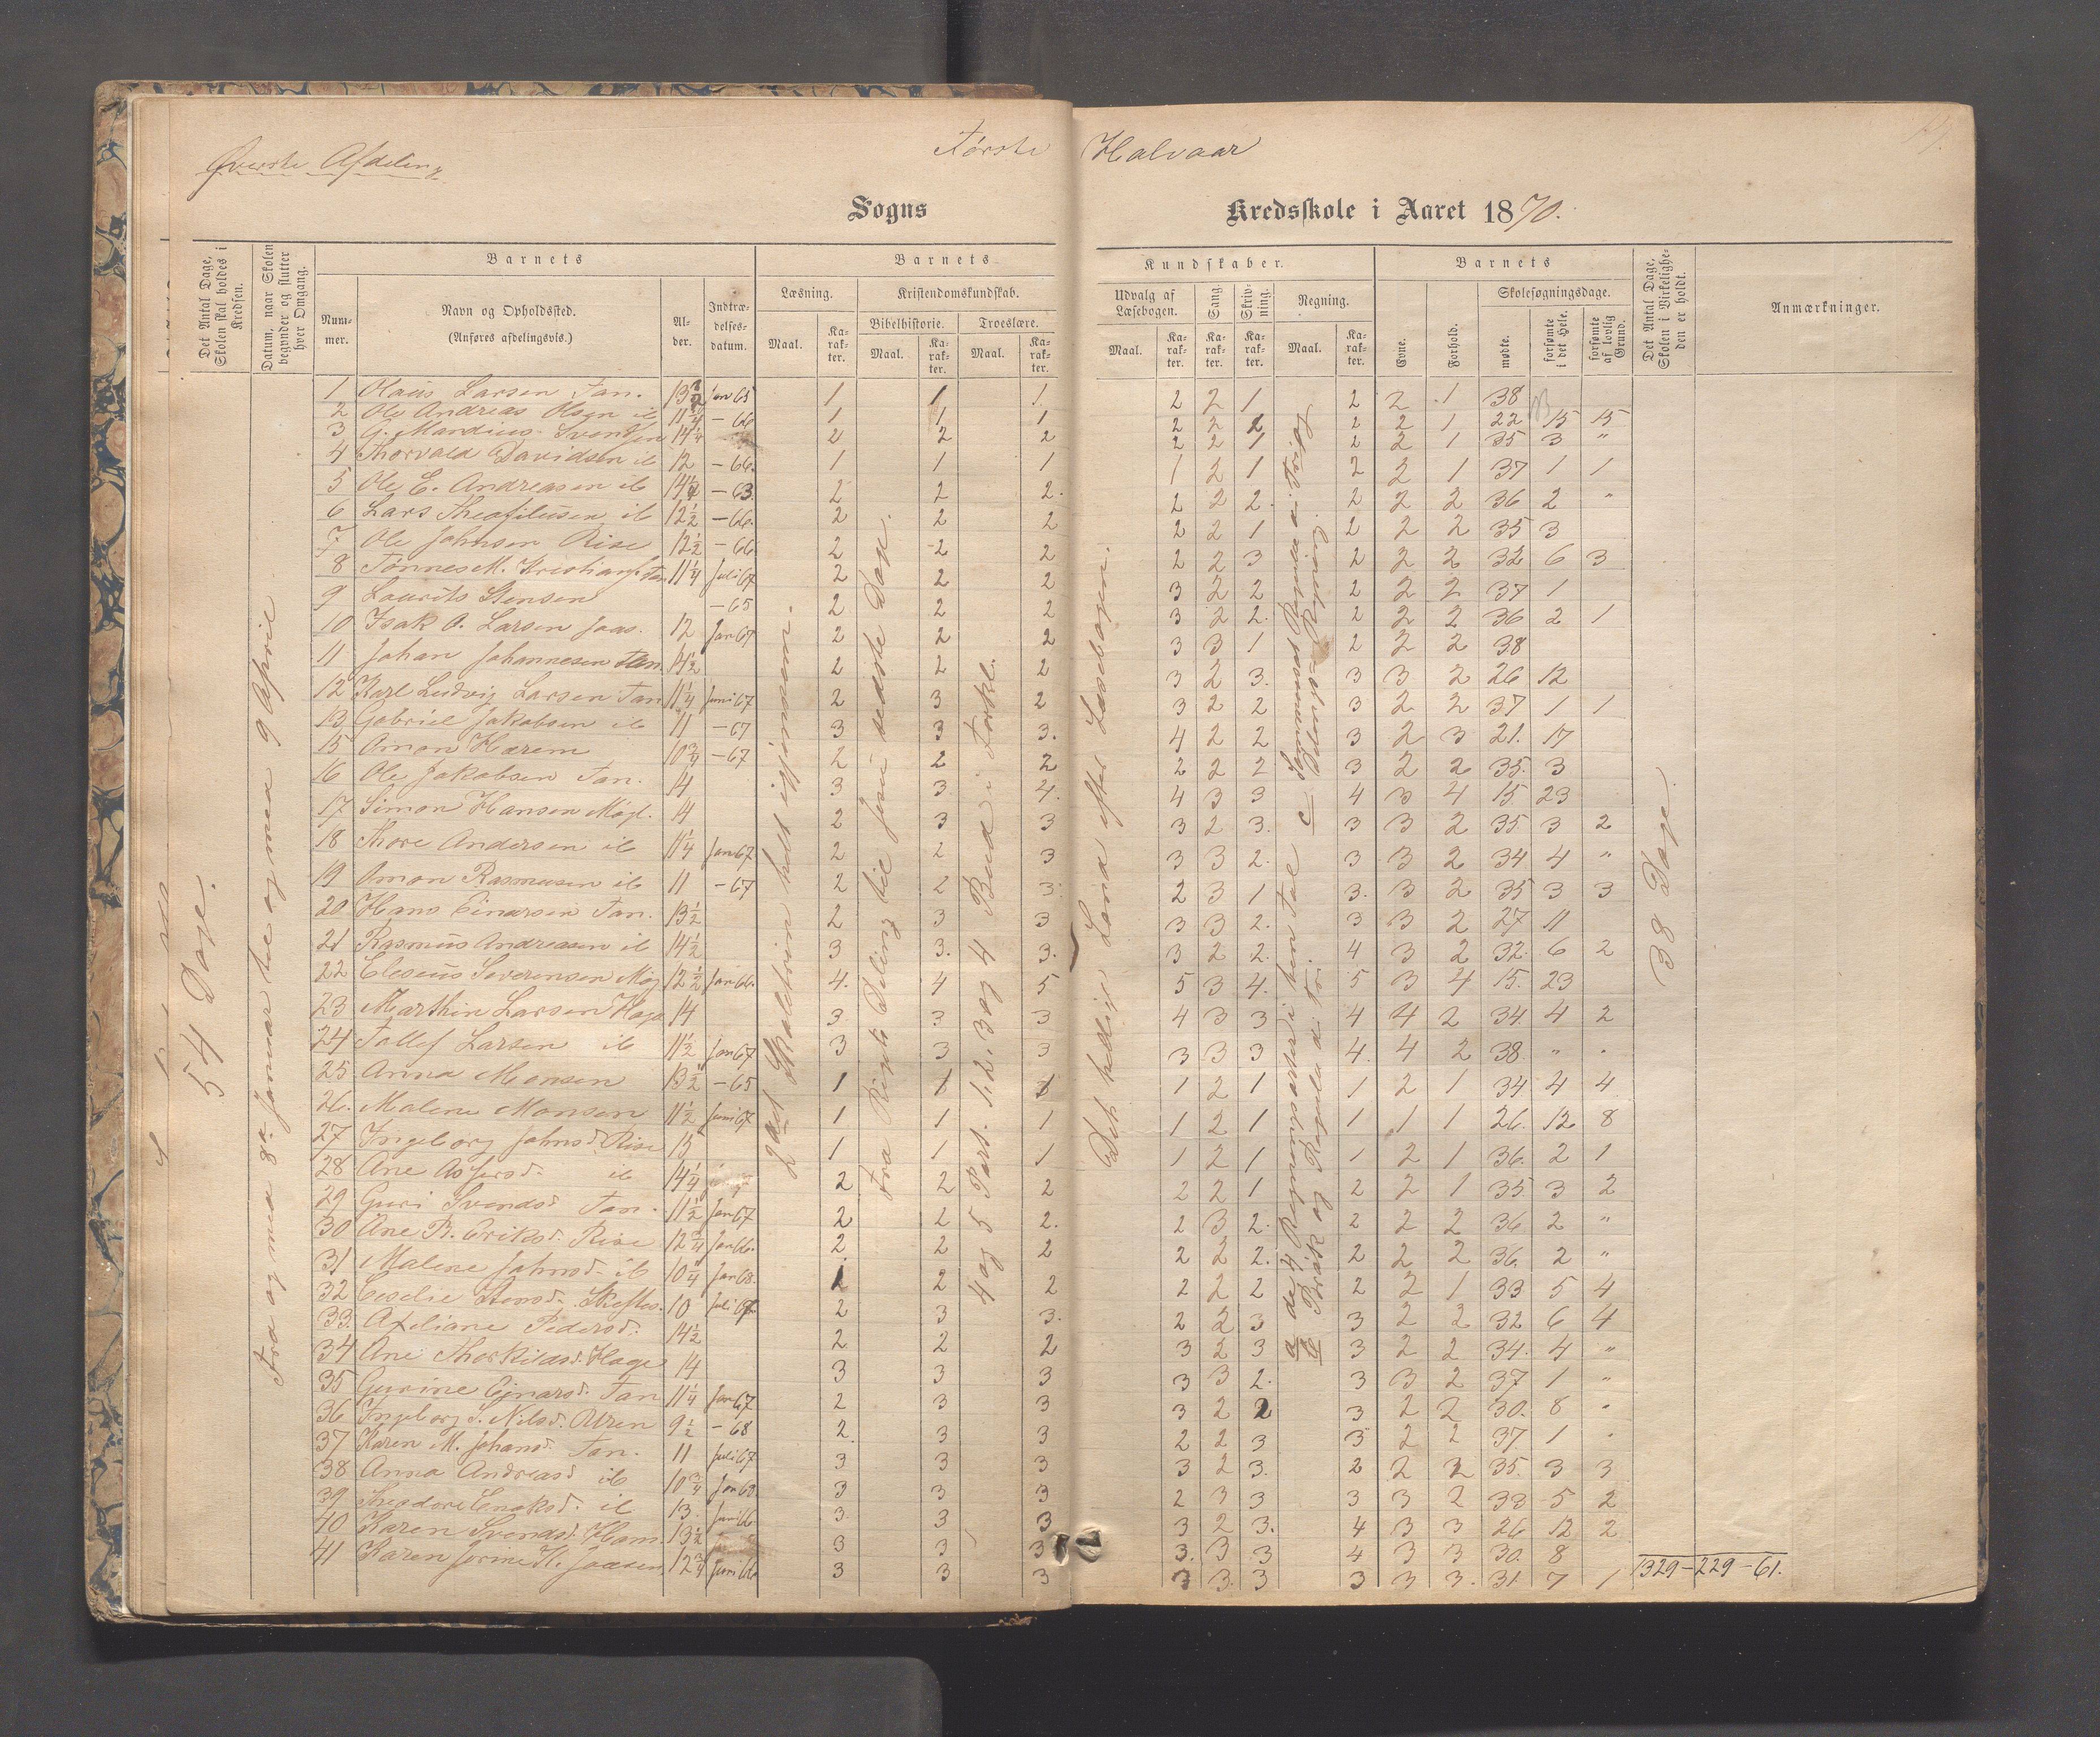 Øverste Afdeling
Første Halvaar
Sogns Kredsskole i Aaret 1870.
Det Antal Dage, Skolen skal holdes i Kredsen.
Datum, naar Skolen begynder og slutter hver Omgang.
Barnets
Nummer.
Navn og Opholdssted.
(Anføres afdelingsvis.)
Alder.
Indtrædelsesdatum.
Barnets
Læsning.
Maal.
Karakter.
Kristendomskundskab.
Bibelhistorie.
Maal.
Karakter.
Troeslære.
Maal.
Karakter.
Kundskaber.
Udvalg af Læsebogen.
Maal.
Karakter.
Sang.
Karakter.
Skrivning.
Karakter.
Regning.
Maal.
Karakter.
Barnets
Evne.
Forhold.
Skolesøgningsdage.
mødte.
forsømte i det Hele.
forsømte af lovlig Grund.
Det Antal Dage, Skolen i Virkeligheden er holdt.
Anmærkninger.
54 Dage.
Fra og med 8de Januar til og med 9 April
2det Skoletrin helt igjennem.
Fra Rigets Deling til Jesu sidste Dage.
4 og 5 Part. 1. 2. 3 og 4 Bud i Forkl.
Det hellige Land efter Læsebogen.
a de 4 Regningsarter i hen Tal c Sammensat Regning i Brøk
b Brøk og Regula de Tri.
38 Dage.
1 Olaus Larsen Tan. 13 1/2 Jan 65 1 1 1 2 2 1 2 2 1 38
2 Ole Andreas Olsen ib 11 3/4 – 66 1 1 1 2 2 2 2 2 1 22 15 15
3 G. Mardius Svendsen 14 1/4 2 2 2 2 2 1 2 2 1 35 3 "
4 Thorvald Davidsen ib 12 – 66. 1 1 1 1 2 1 2 2 1 37 1 1
5 Ole E. Andreasen ib 14 1/4 – 63. 2 2 2. 2 2 2. 2 2 2 36 2 "
6 Lars Theofilusen ib 12 1/2 – 66. 2 2 2 2 2 1 2 2 2 35 3
7 Ole Johnsen Rise 12 1/2 – 66 2 2 2 2 2 3 2 2 2 32 6 3
8 Tønnes M. Kristians. Tan 11 1/4 Juli 67 2 2 2 3 2 2 2 2 2 37 1
9 Laurits Stensen – 65 2 2 2 3 2 2. 2 2 2 36 2 1
10 Isak O. Larsen Jaas. 12 Jan 67 2 2 2 3 3 1 2 2 2 38
11 Johan Johannesen Tan. 14 1/2 2 2 2 3 2 3. 3 3 2 26 12
12 Karl Ludvig Larsen Tan 11 1/4 Juni 67 2 3 2 3 2 2 3 2 2 37 1 1
13 Gabriel Jakobsen ib 11 – 67 3 3 3. 4 2 2 3 2 3 21. 17
15 Omon Hærem 10 3/4 – 67 2 2 2 2 2 2 3 2 2 35. 3
16 Ole Jakobsen Tan. 14 3 3 4. 4 3 3 4 3 4 15. 23
17 Simon Hansen Møgl. 14 2 3 3 3 2 3. 3 3 2 35 3 2
18 Thore Andersen ib 11 1/4 Jan 67 2 2 3 3 3 2. 3 3 2 34 4 "
19 Omon Rasmusen ib 11 – 67 2 2 3 2 3 1 3. 3 2 35 3 3
20 Hans Einarsen Tan. 13 1/2 2 3 3 3 3 2. 3 3 2 27 11
21 Rasmus Andreasen ib 14 1/2 3 3. 3. 3 2 2. 4 3 2 32. 6 2
22 Eleseus Severensen Møg 12 1/2 Jan 66. 4. 4 5 5 3 4. 5 3 4 15. 23
23 Marthin Larsen Hage 14 3 3 3 4 3 3 4 4 2 34. 4 2
24 Tollef Larsen ib 11 1/2 Jan 67 3 3 3 3 3 3 4. 4 2 38. " "
25 Anna Monsen 13 1/2 – 65 1 1 1 1 2 1 1 2 1 34 4 4
26. Malene Monsen 11 1/2 Juni 67 1 1 1 1 2 1 1 1 1 26. 12 8
27 Ingeborg Johnsd. Rise 15 1 1 1 1 2 1 1 2 1 36. 2 1
28 Ane Asjersd. ib 14 1/4 2 2 2 2 2 1 2 2 1 35. 3 2
29 Guri Svendsd. Tan. 11 1/2 Jan 67 2 2 2. 2 3 2. 2 2 2 36 2 "
30 Ane B. Eriksd. Rise 12 3/4 Jan 66. 2 2 2 2 2 2. 2 2 2 36. 2 "
31 Malene Johnsd. ib 10 1/4 Jan 68. 1 2 2 2 2 2 2 2 1 33 5 4
32 Ceselie Stensd. Skeftes. 10 Juli 67 2 3 3. 2 2 3 3 2 2 32 6 4
33. Axeliane Pedersd. 14 1/2 2 2 2 3 2 3 3 2 2 34. 4 "
34 Ane Thorkildsd. Hage 14 3 3 3 3 3 2. 3 3 2 37 1 "
35 Gurine Ejnarsd. Tan 11 1/4 Jan 67 2 3 3 3 2 2 3 2 2 30. 8 "
36 Ingeborg S. Nilsd. Uren 9 1/2 – 68 2. 3 3 2 2 3 3 2 2 37. 1 "
37 Karen M. Johansd. Tan. 11 Juli 67 3 3 3 3 2 3. 2 2 2 35. 3 3
38 Anna Andreasd. ib 10 3/4 Jan 68 3 3 3 2 3 3 3 3 2 33 5 2
39 Theodore Enoksd. ib 13 Juni 66 3 3 3 3 2 3. 4 3 3 26 12 2
40 Karen Svendsd. Ham. 13 1/2 3 3 3 3. 3 3 4 3 3 30. 8
41 Karen Jorine K. Jaasen. 12 3/4 Juni 66 3 3 3 3 3. 3 3 3 3. 31. 7 1
1329 – 229 – 61.